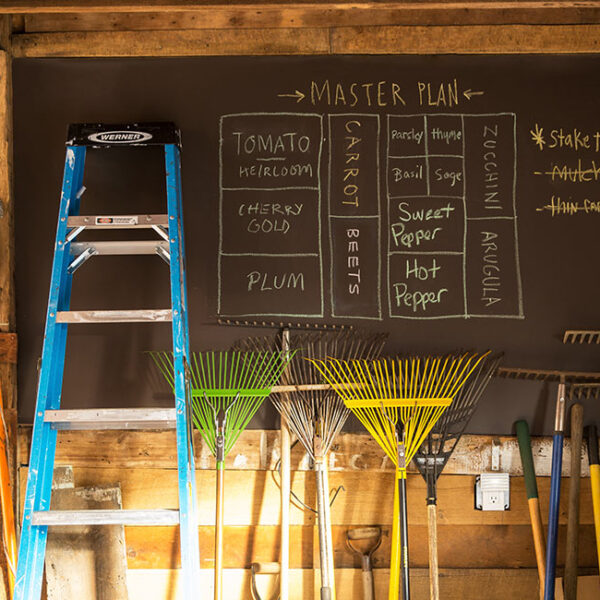 WERNER
→ MASTER PLAN ←
TOMATO
HEIRLOOM
CHERRY
GOLD
PLUM
CARROT
BEETS
Parsley
thyme
Basil
Sage
Sweet
Pepper
Hot
Pepper
ZUCCHINI
ARUGULA
* Stake
- Mulch
- Thin